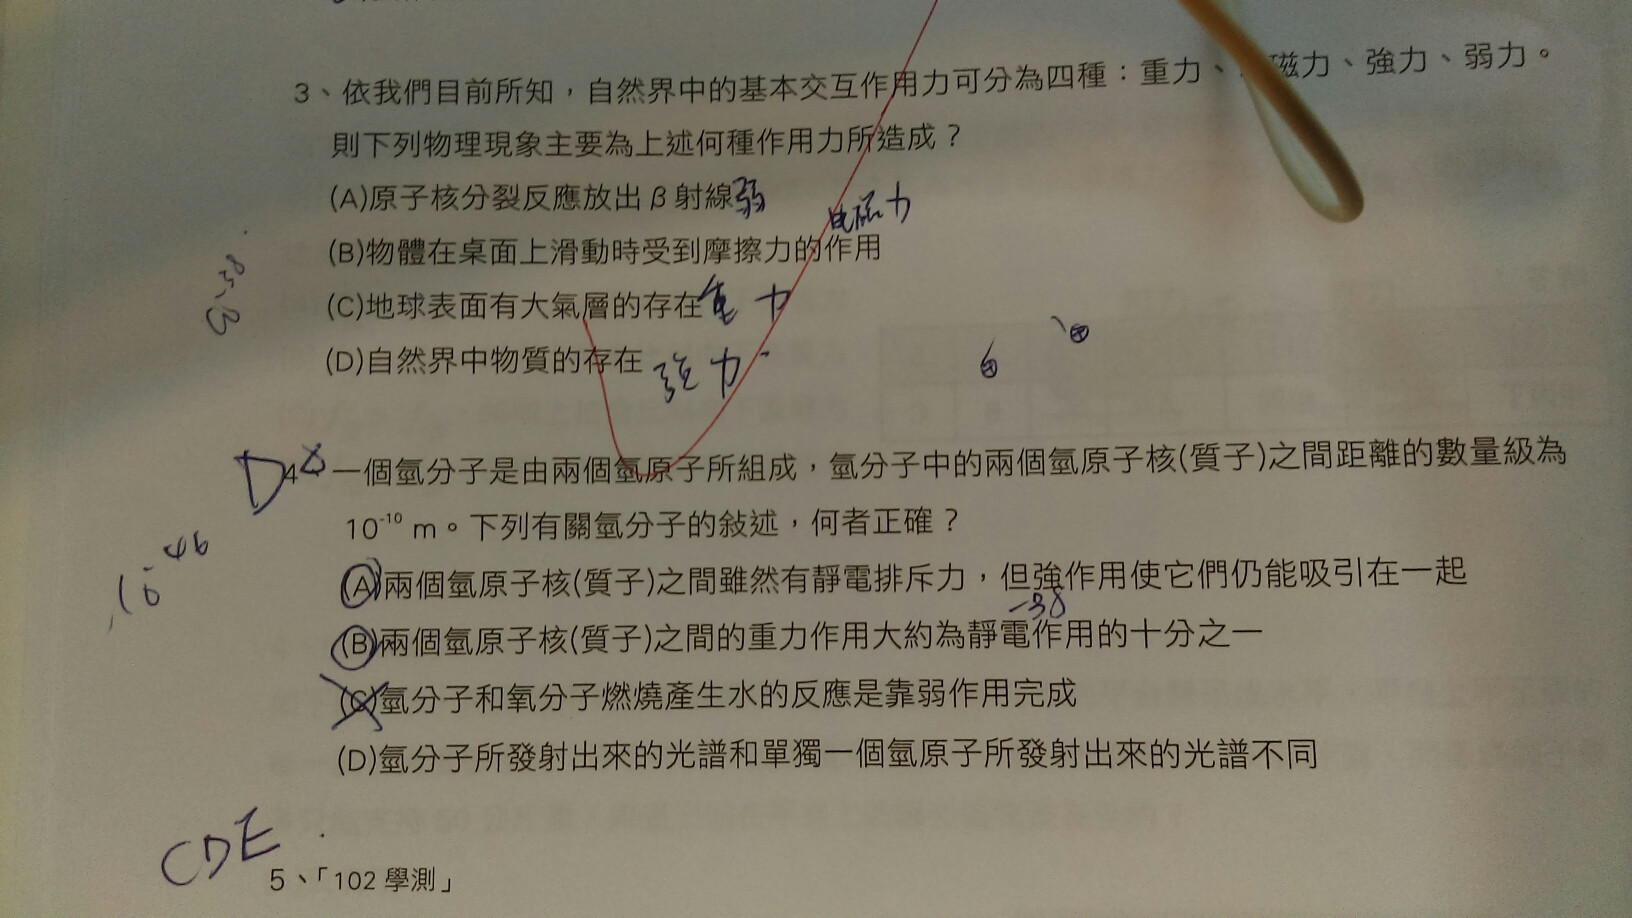 3、依我們目前所知，自然界中的基本交互作用力可分為四種：重力、磁力、強力、弱力。
則下列物理現象主要為上述何種作用力所造成？
(A)原子核分裂反應放出β射線 弱
電磁力
(B)物體在桌面上滑動時受到摩擦力的作用
(C)地球表面有大氣層的存在 重力
(D)自然界中物質的存在 強力
D 4、一個氫分子是由兩個氫原子所組成，氫分子中的兩個氫原子核(質子)之間距離的數量級為
10⁻¹⁰ m。下列有關氫分子的敍述，何者正確？
(A)兩個氫原子核(質子)之間雖然有靜電排斥力，但強作用使它們仍能吸引在一起
-38
(B)兩個氫原子核(質子)之間的重力作用大約為靜電作用的十分之一
(C)氫分子和氧分子燃燒產生水的反應是靠弱作用完成
(D)氫分子所發射出來的光譜和單獨一個氫原子所發射出來的光譜不同
10⁻⁴⁶
CDE
5、「102 學測」